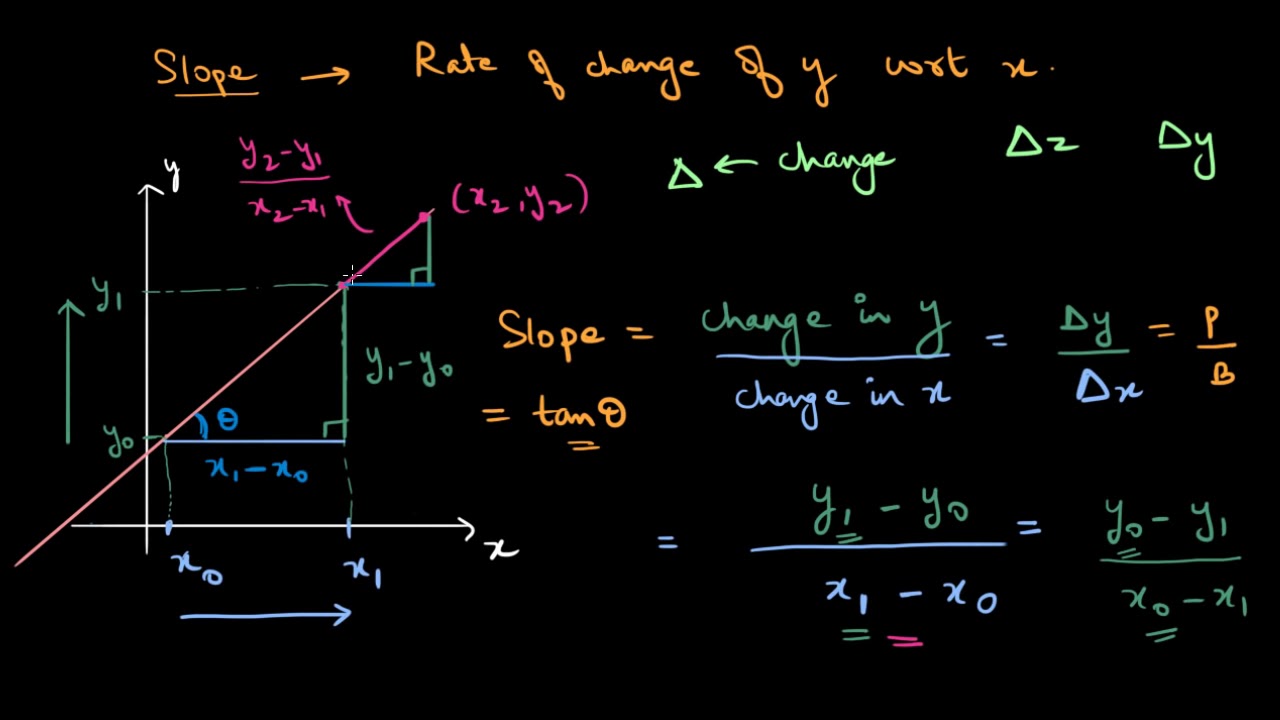 Slope → Rate of change of y wrt x.
Δ ← change Δz Δy
y
y₂-y₁/x₂-x₁
(x₂,y₂)
y₁
y₁-y₀
y₀
θ
x₁-x₀
x
x₀ x₁
Slope = change in y/change in x = Δy/Δx = P/B
= tanθ
= y₁ - y₀/x₁ - x₀ = y₀ - y₁/x₀ - x₁